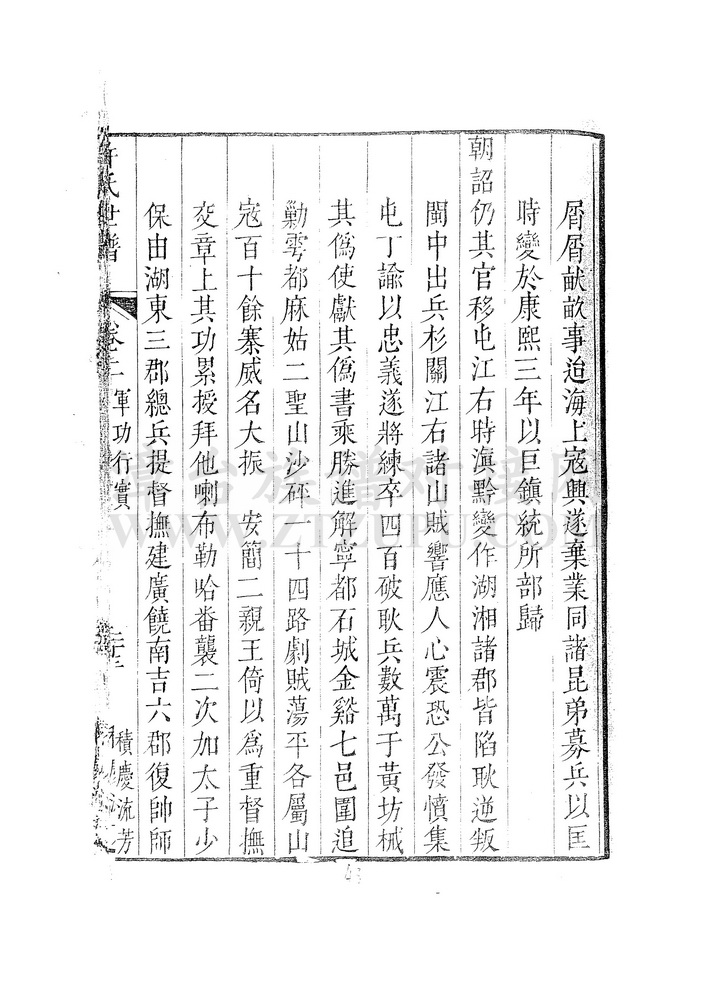 屑屑畎畝事迨海上寇興遂棄業同諸昆弟募兵以匡
時變於康熙三年以巨鎮統所部歸
朝詔仍其官移屯江右時滇黔變作湖湘諸郡皆陷耿逆叛
閩中出兵杉關江右諸山賊響應人心震恐公發憤集
屯丁諭以忠義遂將練卒四百破耿兵數萬于黃坊械
其偽使獻其偽書乘勝進解寧都石城金谿七邑圍追
勦雩都麻姑二聖山沙砰一十四路劇賊蕩平各屬山
寇百十餘寨威名大振 安簡二親王倚以為重督撫
交章上其功累授拜他喇布勒哈番襲二次加太子少
保由湖東三郡總兵提督撫建廣饒南吉六郡復帥師
氏世譜 卷二 軍功行實 積慶流芳
臺谷族譜对接网
WWW.ZTZUPU.COM